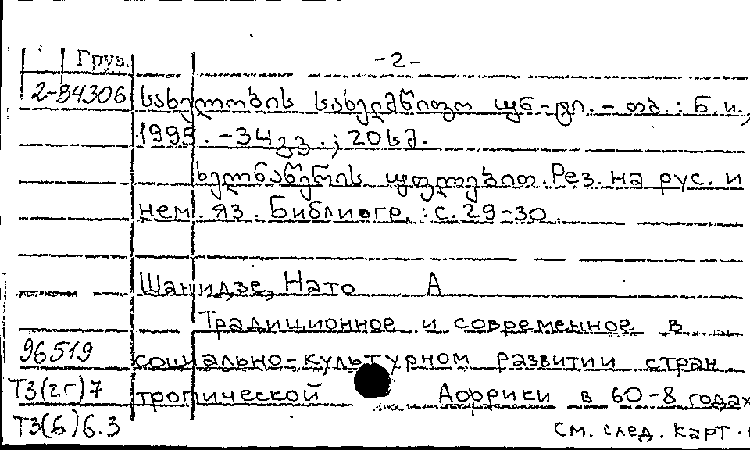 Груз. -2-
2-84306 სახელობის სახელმწიფო უნ-ტი. - თბ. : Б.и.,
1995. - 34 გვ. ; 20 სმ.
ხელნაწერის უფლებით. Рез. на рус. и
нем. яз. Библиогр.: с. 29-30.
Шанидзе, Нато А
Традиционное и современное в
96519 социально-культурном развитии стран
Т3(2Г)7 тропической Африки в 60-8 годах
Т3(6)6.3 См. след. карт.